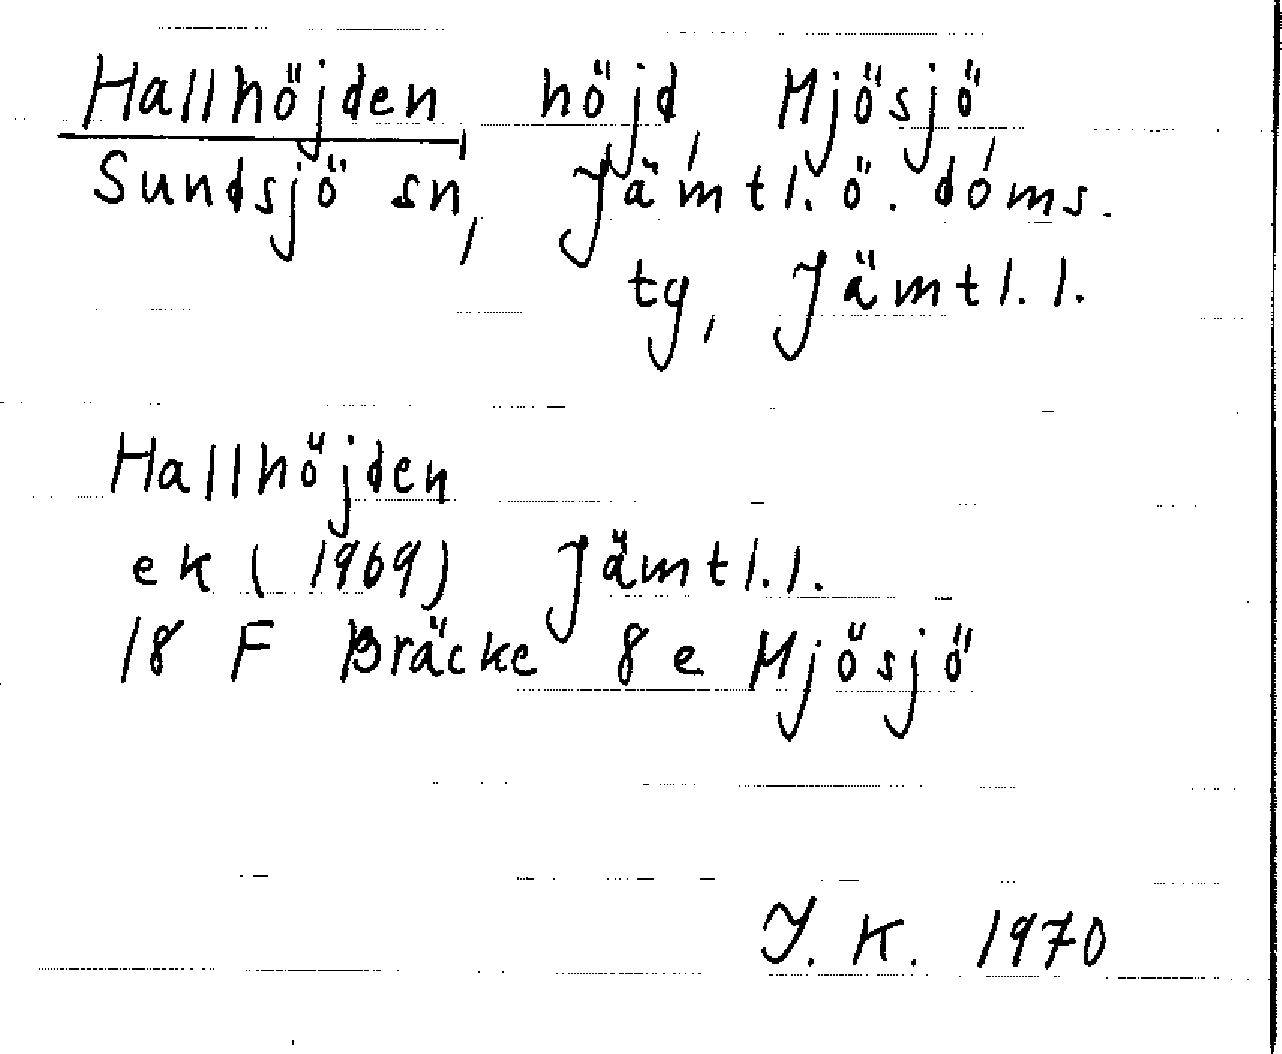 Hallhöjden, höjd, Mjösjö,
Sundsjö sn, Jämtl. ö. doms.
tg, Jämtl. l.
Hallhöjden
ek (1969) Jämtl. l.
18 F Bräcke 8 e Mjösjö
J. K. 1970